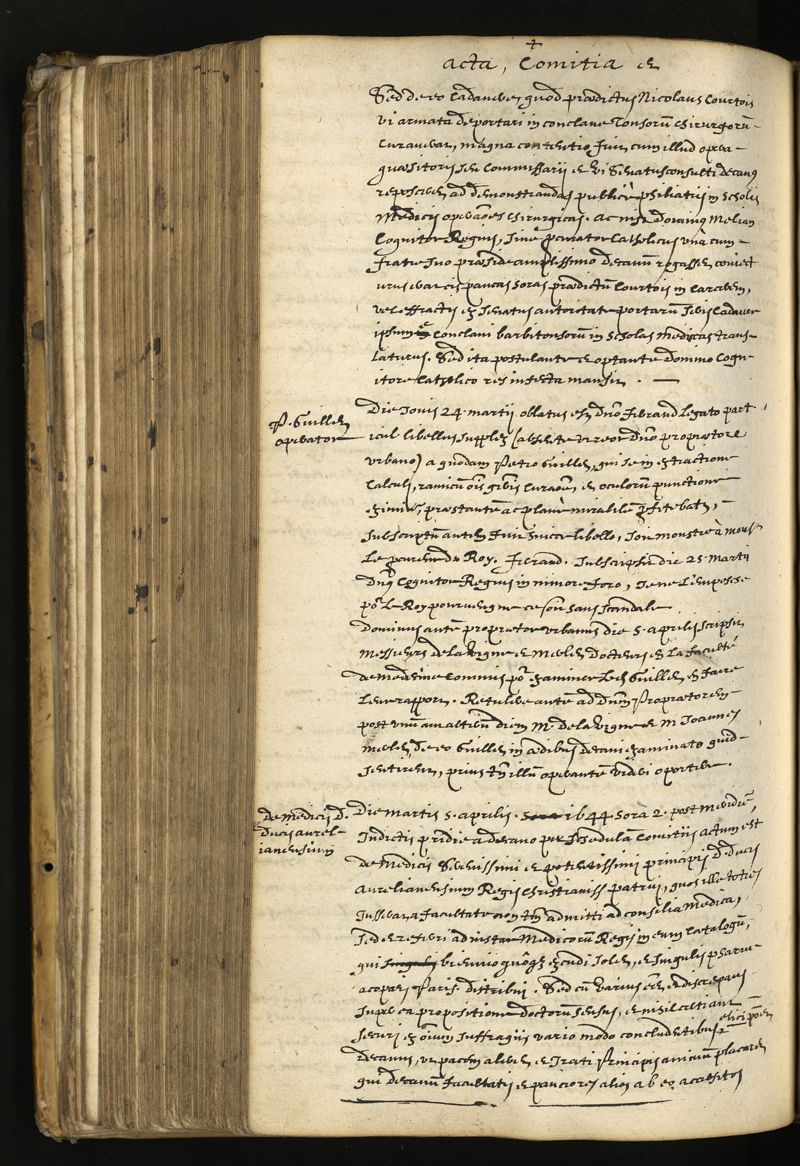 acta, Comitia et
Sed de eo cadavere, quod prædictus Nicolaus Courtois
vi armata deportari in conclave Tonsorū chirurgorū
curaverat, magna contentio fuit, cum illud opera
quæsitoris seu commissarii et vi Senatusconsulti decanus
reposceret ad demonstrandas publicè in scholis
Medicis operāoēs chirurgicas. ac nisi Dominus Melian
Cognitor Regius, sive ꝓcurator catholicus unà cum
fratre suo præside amplissimo decanū rogasset, coniect
urus erat eis paucas horas prædictū Courtois in carcerem,
vel effractis ex Senatus autoritate portarū seris cadaver
ipsum è conclavi barbitonsorū in scholas medicas trans
laturus. Sed ita postulante et optante domino Cogni
itore Catholico res infecta mansit. —
P. Guillet
operator
Die Jovis 24. martij oblatus est dño ferrand legato part
icul libellus supplex (absente ut reor dño proprætore
urbano) a quodam Petro Guillet, qui se in extractione
calculi, ramicū oīs gñis curaōne, et oculorū punctione
eximiè præstantē ac planè mirabilē ꝓfitebatr,
subscriptū autem fuit huicce libello, soit monstré à mons.r
le ꝓcureur du Roy. ferrand. subscripsit die 25. martij
Dñs Cognitor Regius in minore foro, Je ne l'empesche
po.r le Roy pourveu que ce soit sans scandale.
Dominus autē proprætor urbanus die 5. aprilis scripsit
messieurs de la Vigne et Merlet Docteurs en la faculté
de medecine commis po.r examiner led. Guillet, et faire
leur rapport. Retulere autē ad dñm Proprætorem
post unū aut alterū diem M. de la Vigne et M. Joannes
merlet, de eo Guillet in ædibus decani examinato quid
sentirent, prius tñ illū operantē videri oportere.
De medicis d.
Ducis aurel-
ianensium
Die martis 5. aprilis. 1644 hora 2. post meridiē,
indictis pridie a decano per schedulā Comitiis actum est
de medicis Serenissimi et potentissimi principis D. ducis
aurelianensium Regis christianiss. patrui, quos ille toties
iusserat a facultate non tm̄ admitti ad consilia medica,
sed et referri ad instar Medicorū Regis in eum catalogū,
qui biennio quōqz excudi solet, et singulis pharm
acopœis Paris. distribui. Sed cū varius esset, et discrepans
super ea propositione doctorū sensus, et nihil certi aut
securi ex oīum suffragiis vario modo concludentibus elici posset
decanus, ut pacem aleret et irati Principis animum placaret
qui decanū facultatis et pauciores alios ab eo accersitos